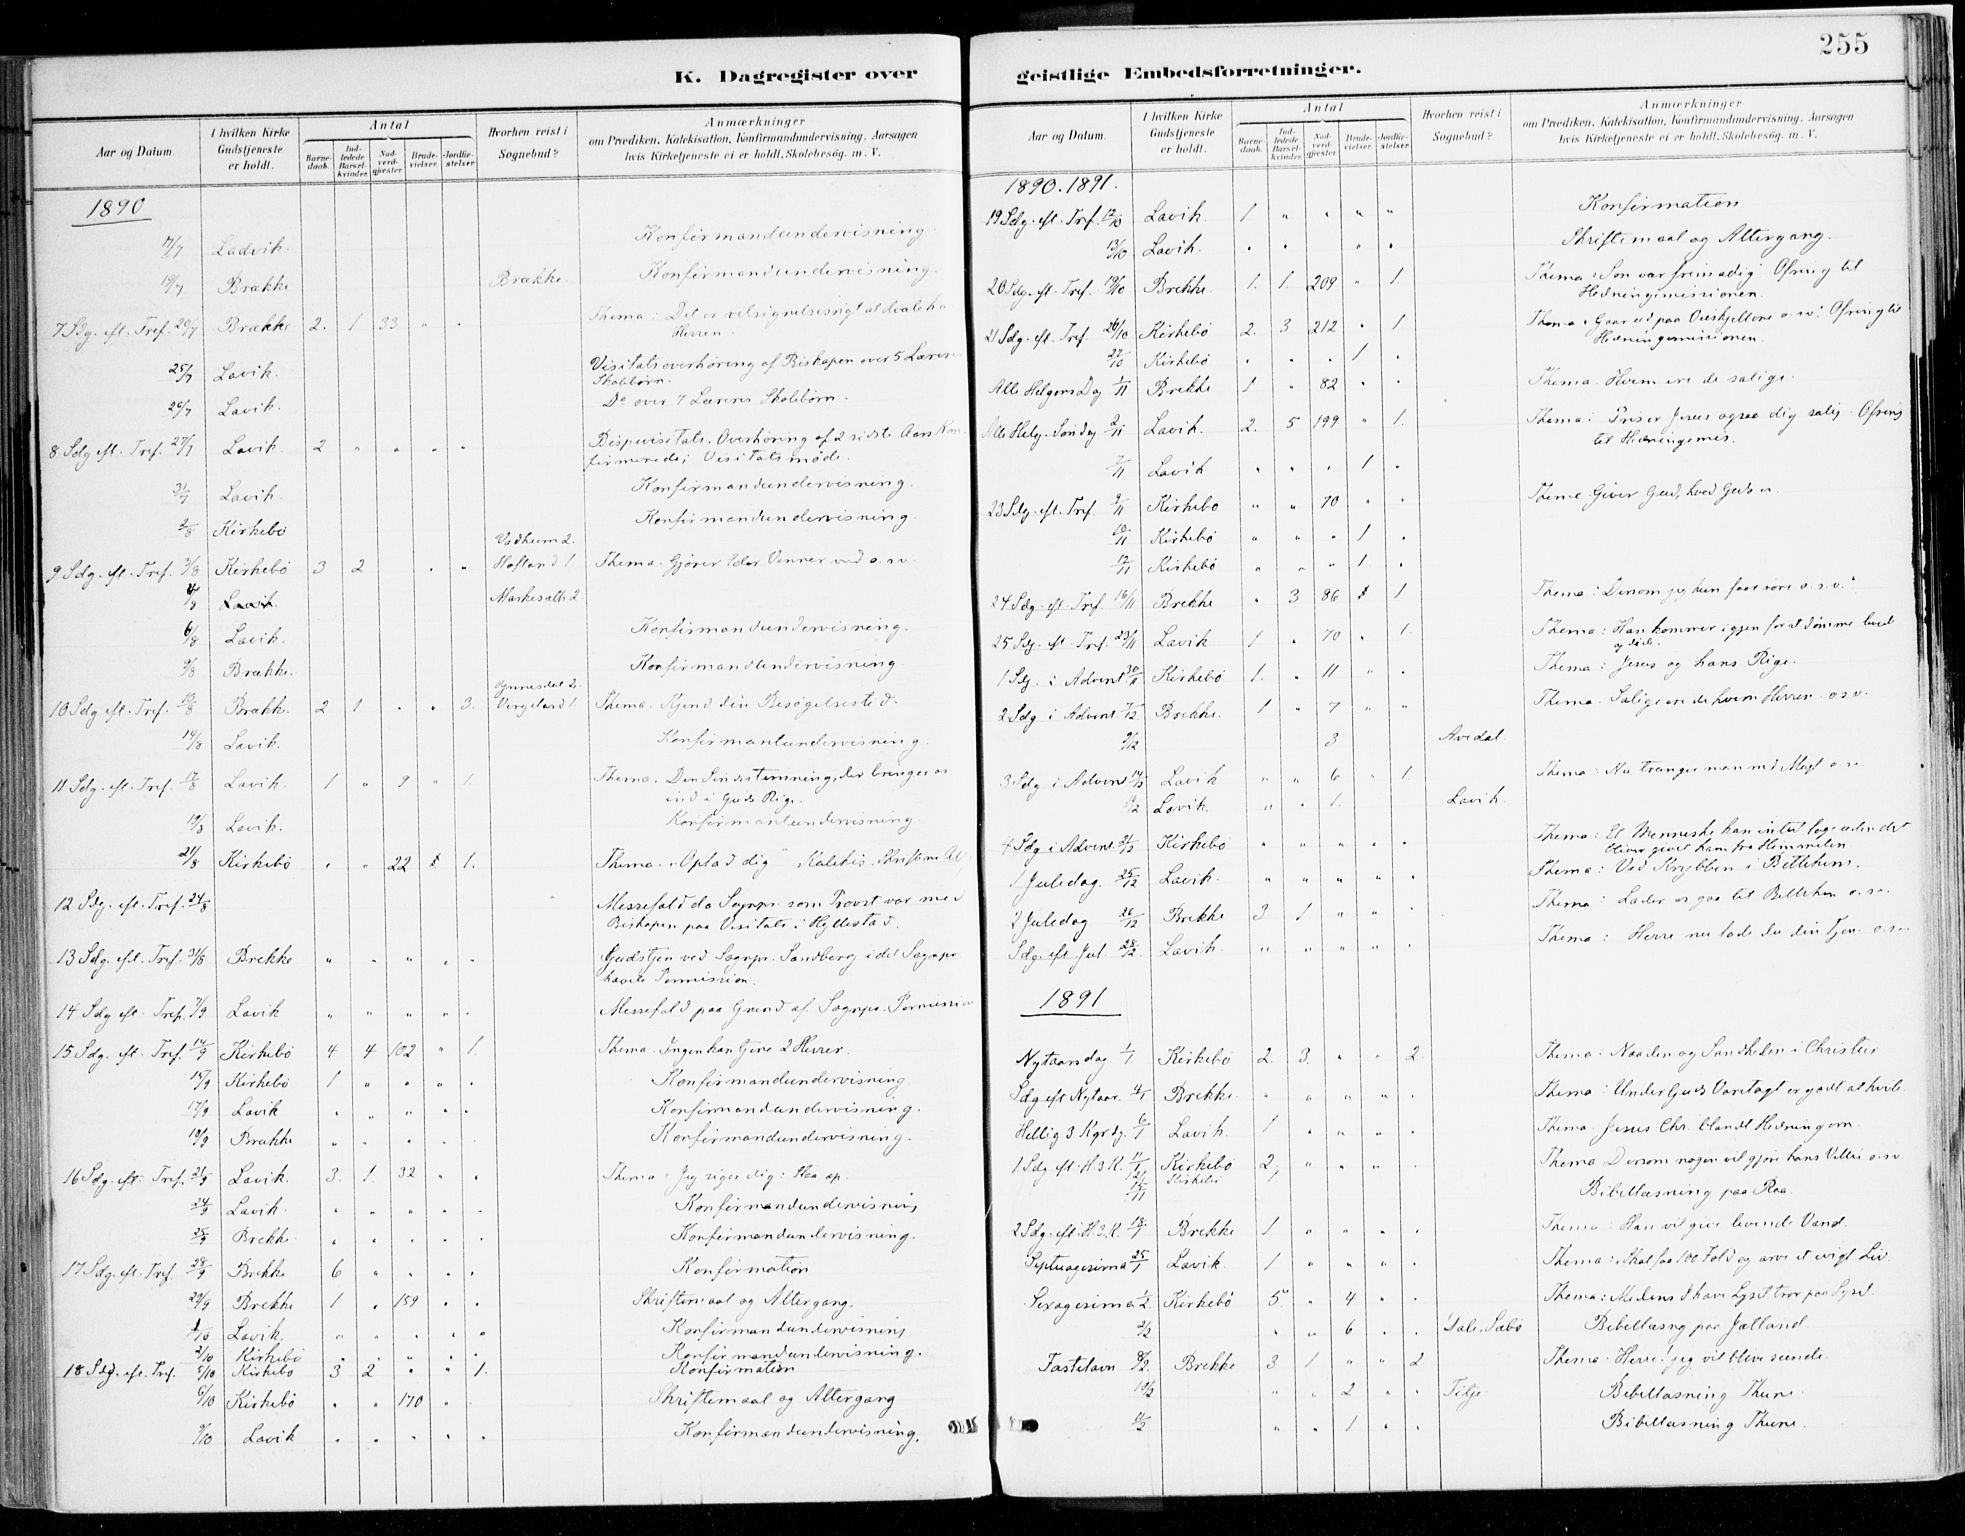 255
K. Dagregister over
geistlige Embedsforretninger.
Aar og Datum.
I hvilken Kirke Gudstjeneste er holdt.
Antal
Barnedaab.
Indledede Barselkvinder.
Nadverdgjæster.
Brudevielser.
Jordfæstelser
Hvorhen reist i Sognebud?
Anmærkninger
om Prædiken, Katekisation, Konfirmandundervisning, Aarsagen
hvis Kirketjeneste ei er holdt, Skolebesøg. m. V.
1890
17/7 Ladvik. Konfirmandundervisning.
19/7 Brække Brække. Konfirmandundervisning.
7 Sdg. eft. Tref. 20/7 Brække 2. 1 33 " . Thema: Det er velsignelsesrigt at dvæle hos
Herren.
25/7 Lavik. Visitatsoverhøring af Biskopen over 5 Læreres
Skolebørn.
26/7 Lavik. Do over 7 Læreres Skolebørn.
8 Sdg eft. Tref. 27/7 Lavik. 2 " " " " Bispevisitats. Overhøring af 2 sidste Aars Kon-
firmerede; Visitatsmøde.
31/7 Lavik. Konfirmandundervisning.
2/8 Kirkebö Konfirmandundervisning.
Vadheim 2.
9 Sdg. eft. Tref. 3/8 Kirkebö 3 2 . " Hofland 1. Thema. Gjører Eder Venner ved o.s.v.
4/8 Lavik. Maskesalth 2.
6/8 Lavik. Konfirmandundervisning.
9/8 Brække. Konfirmandundervisning
Ynnesdal 2.
10 Sdg eft. Tref. 10/8 Brække. 2 1 . . 3. Vergeland 1. Thema. Kjend din Besøgelsestid.
14/8 Lavik. Konfirmantundervisning.
11 Sdg. eft. Tref. 17/8 Lavik. 1 " 9 " 1. Thema. Den Sindsstemning, der bringes os
ind i Guds Rige.
19/8 Lavik. Konfirmantundervisning.
21/8 Kirkebö . " 22 1. Thema. "Oplad dig" Katekis. Skriftem. Al.
12 Sdg. eft. Tref. 24/8 Messefald da Sognpr. som Provst var med
Biskopen paa Visitats i Hyllestad.
13 Sdg. eft. Tref. 31/8 Brekke " " " . " Gudstjen ved Sognpr. Sandberg i det Sognpr
havde Permission.
14 Sdg eft. Tref. 7/9 Lavik " " " . . Messefald paa Grund af Sognpr. Permission
15 Sdg. eft. Tref. 14/9 Kirkebö 4 4 102 " 1. Thema. Ingen kan tjene 2 Herrer.
15/9 Kirkebö 1 " " " . Konfirmandundervisning
17/9 Lavik . " " . . Konfirmandundervisning.
18/9 Brække " " . . . Konfirmandundervisning.
16 Sdg. eft. Tref. 21/9 Lavik. 3. 1. 32 " . Thema. Jeg siger dig: Staa op.
24/9 Lavik. " " " . . Konfirmandundervisning
25/9 Brekke. " " . . . Konfirmandundervisning.
17 Sdg. eft. Tref. 28/9 Brekke 6 " " . . Konfirmation
29/9 Brekke 1 " 159 . . Skriftemaal og Altergang.
1/10 Lavik. " " . . . Konfirmandundervisning
2/10 Kirkebö . . " " . Konfirmandundervisning.
18 Sdg. eft. Tref. 5/10 Kirkebö 3 2 " " 1. Konfirmation
6/10 Kirkebö . . 170 . . Skriftemaal og Altergang
9/10 Lavik . . . . . Konfirmandundervisning.
Aar og Datum.
I hvilken Kirke Gudstjeneste er holdt.
Antal
Barnedaab.
Indledede Barselkvinder.
Nadverdgjæster
Brudevielser.
Jordfæstelser
Hvorhen reist i Sognebud?
Anmærkninger
om Prædiken, Katekisation, Konfirmandundervisning, Aarsagen
hvis Kirketjeneste ei er holdt. Skolebesøg. m. V.
1890. 1891.
19 Sdg. eft. Tref. 12/10 Lavik. 1 " " " " Konfirmation
13/10 Lavik. . . " . Skriftemaal og Altergang.
20 Sdg. eft. Tref. 19/10 Brekke. 1. 1. 209 " 1. Thema: Søn vær frimodig. Ofring til
Hedningemissionen.
21 Sdg. eft. Tref. 26/10 Kirkebö 2. 3 212 . 1 Thema: Gaar ud paa Veiskjellene o.s.v. Ofring til
Hedningemissionen.
27/10 Kirkebö . . . 1 .
Alle Helgens Dag 1/11 Brekke 1 " 82 . . Thema. Hvem ere de salige.
Alle Helg. Søndag 2/11 Lavik. 2. 5 199 " 1. Thema: Priser Jesus ogsaa dig salig. Ofring
til Hedningemis.
7/11 Lavik . . . 1 .
23 Sdg. eft. Tref. 9/11 Kirkebo " " 70 " . Thema Giver Gud, hvad Guds er.
10/11 Kirkebö " " . 1 .
12/11 Kirkebö " . " 1 .
24 Sdg. eft. Tref. 16/11 Brekke . 3 86 1 Thema: Dersom jeg kun faar røre o.s.v."
25 Sdg. eft. Tref. 23/11 Lavik 1 . 70 . 1. Thema: Han kommer igjen for at dömme levende
og döde.
1 Sdg. i Advent. 30/11 Kirkebö 1. . 11 " . Thema: Jesus og hans Rige.
2 Sdg i Advent 7/12 Brekke. 1 " 7 " " Thema. Salige ere de hvem Herren o.s.v.
9/12 3 Avedal
3 Sdg i Advent 14/12 Lavik " " 6 " 1 Thema: Nu trænger man med Magt o.s.v.
Lavik. " . 1. Lavik.
4 Sdg i Advent 21/12 Kirkebö " " " " . Thema: Et Menneske kan intet tage uden det
bliver givet ham fra Himmelen.
1 Juledag. 25/12 Lavik. " " " " . Thema: Ved Krybben i Bethlehem.
2 Juledag 26/12 Brekke 3 1 " " . Thema: Lader os gaa til Bethlehem o.s.v.
Sdg. eft Jul. 28/12 Lavik. " " " " . Thema: Herre nu lade du din Tjen. o.s.v.
1891
Nytaarsdag 1/1 Kirkebö 2. 3. " " 2. Thema: Naaden og Sandheden i Christus
Sdg eft Nytaar. 4/1 Brekke. " " " " . Thema: Under Guds Varetægt er godt at hvile.
Hellig 3 Kgr dg. 6/1 Lavik. 1 . " . . Thema. Jesus Chr. blandt Hedningerne.
1 Sdg eft. H. 3 K. 11/1 Kirkebö 2, . " " . Thema Dersom nogen vil gjøre hans Villie o.s.v.
Kirkebö Bibellæsning paa Raa.
2 Sdg. eft. H. 3. K. 18/1 Brekke 1 " " " . Thema: Han vil give levende Vand.
Septuagesima 25/1 Lavik. 1 " " " . Thema: Skal faa 100 Fold og arve et evigt Liv.
Sexagesima 1/2. Kirkebö 5. " 4 . . Thema: Medens I have Lyset tror paa Lyset.
2/2 " " 6 . . Dale, Sæbø Bibellæsng paa Jælland.
Fastelavn 8/2. Brekke 3 1 " " 2 Thema. Herre! jeg vil blive seende.
10/2 " . 2 . . Titje Bibellæsning Thune.
11/2 " . 1 . . Bibellæsning Thune.